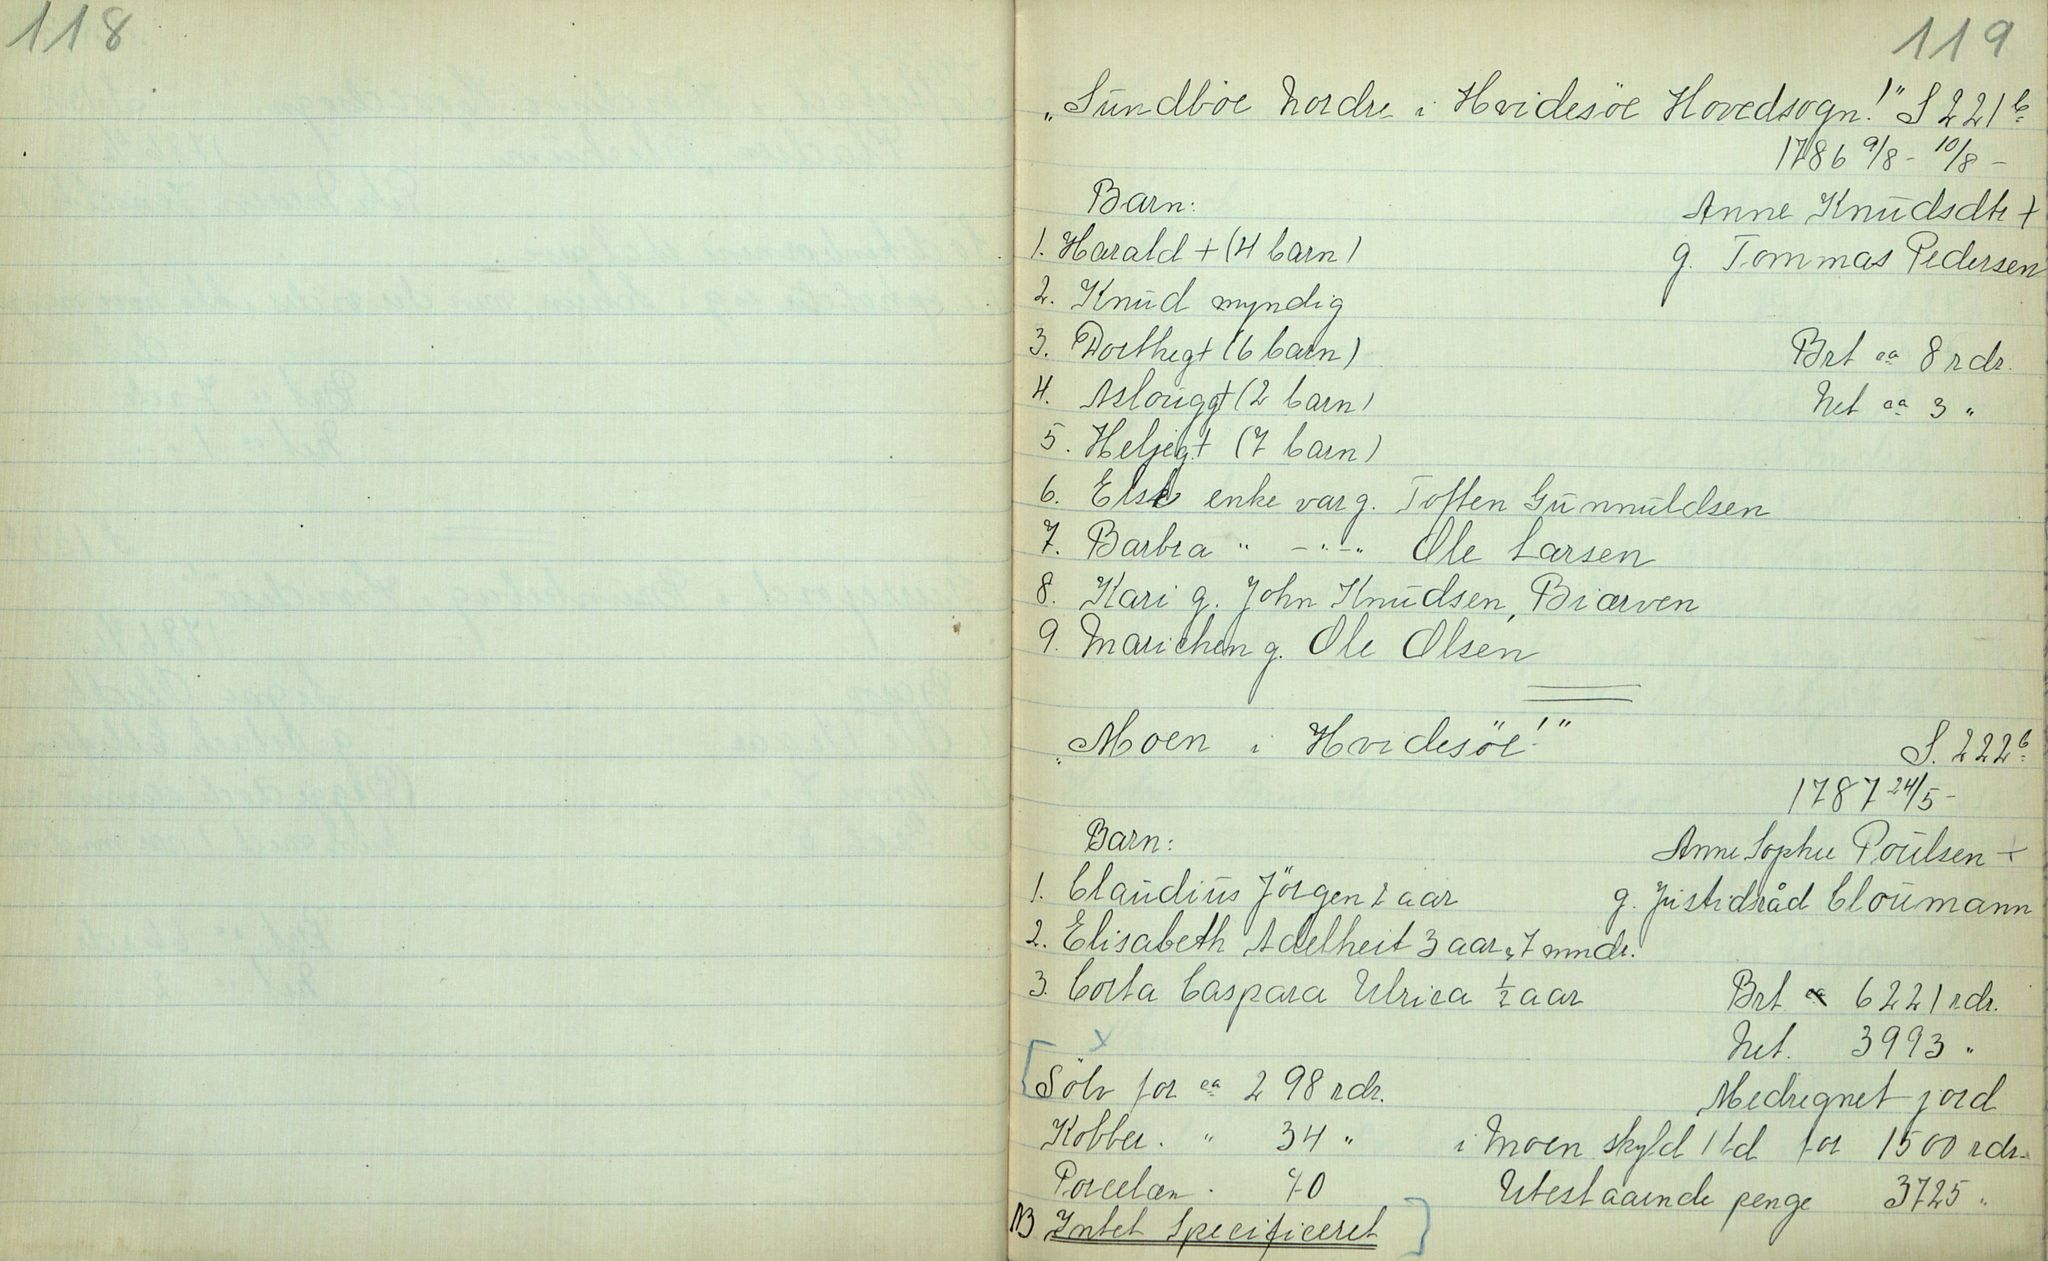 118
119
"Sundböe Nordre i Hvidesöe Hovedsogn!" S 221b
1786 9/8 - 10/8 -
Barn:
Anne Knudsdtr +
1. Harald + (4 barn)
g. Tommas Pedersen
2. Knud myndig
3. Dorthe g+ (6 barn)
Brt ca 8 rdr.
4. Asloug g+ (2 barn)
Net ca 3 "
5. Helje g+ (7 barn)
6. Else enke var g. Toften Gunnuldsen
7. Barbra " - " - " Ole Larsen
8. Kari g. John Knudsen, Biærven
9. Marichen g. Ole Olsen
"Moen i Hvidesöe!"
S. 222b
1787 24/5 -
Barn:
Anne Sophie Poulsen +
1. Claudius Jörgen 2 aar
g. Justidsråd Cloumann
2. Elisabeth Adelheit 3 aar, 7 mndr.
3. Corta Caspara Ulrica 1/2 aar
Brt 6221 rdr.
Net. 3993 "
x
[Sölv for ca 298 rdr.
Medregnet jord
Kobber. " 34 "
i Moen skyld 1 td for 1500 rdr.
Porcelæn. 40
Utestaaende penge 3725 "
NB Intet Specificeret]